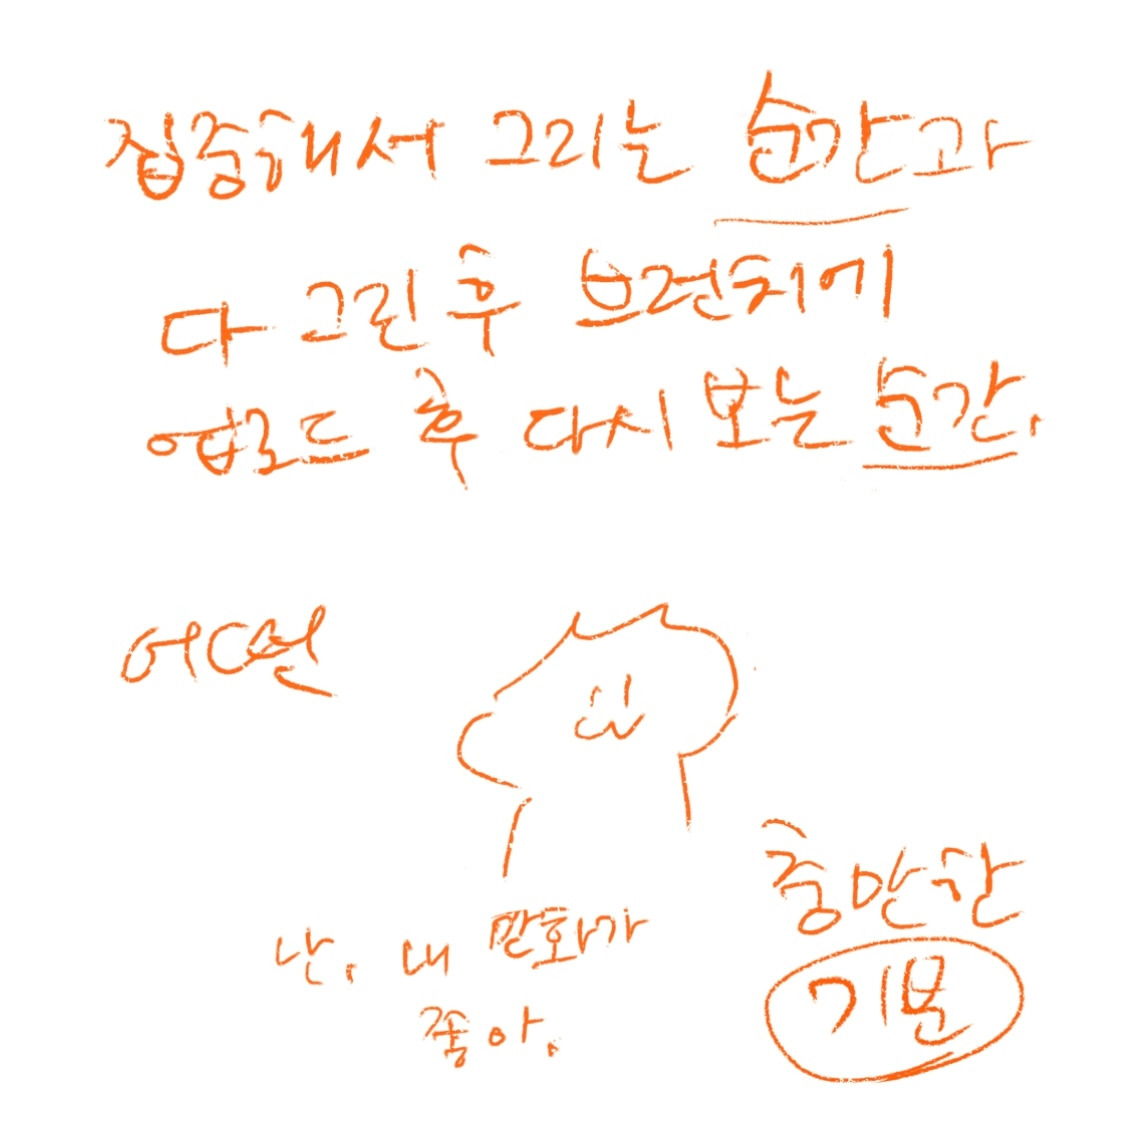 집중해서 그리는 순간과
다 그린 후 브런치에
업로드 후 다시 보는 순간,
어떤
난, 내 만화가
좋아.
충만한
기분